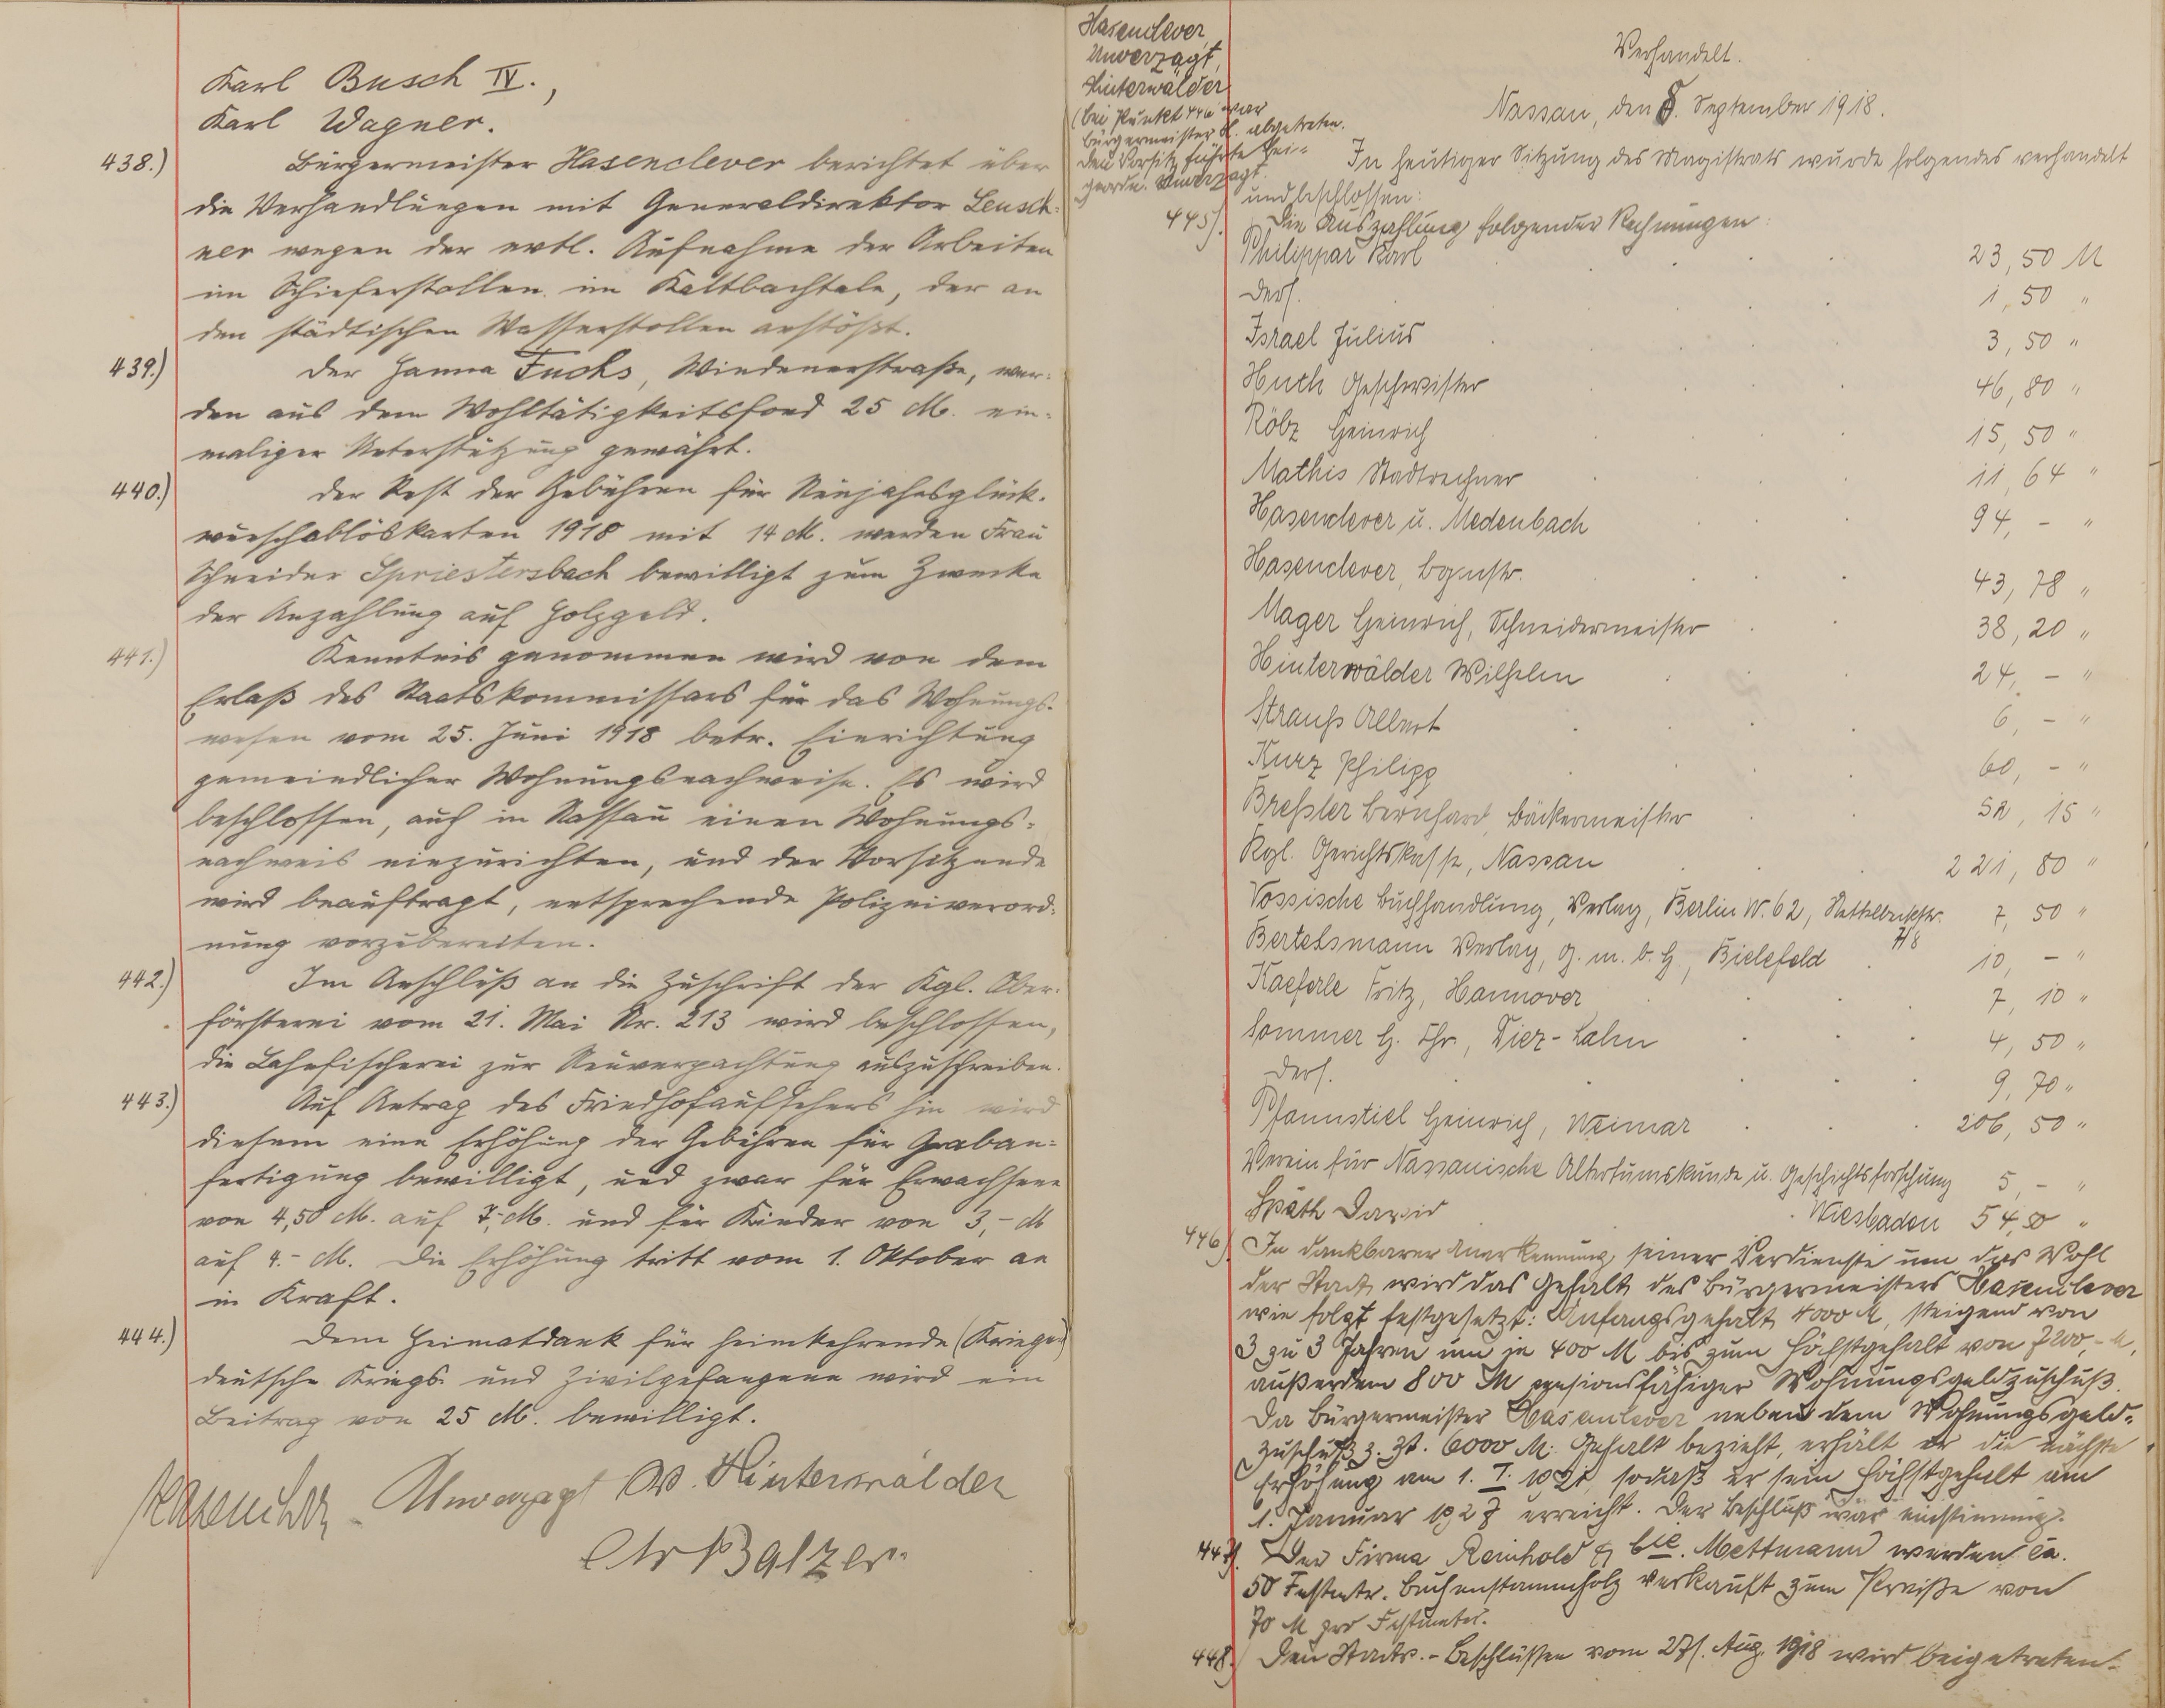 Karl Busch IV.,
Karl Wagner.
438.) Bürgermeister Hasenclever berichtet über
die Verhandlungen mit Generaldirektor Leusch-
ner wegen der evtl. Aufnahme der Arbeiten
im Schieferstollen im Kaltbachtale, der an
den städtischen Wasserstollen anstößt.
439.) Der Hanna Fuchs, Windenerstraße, wer-
den aus dem Wohltätigkeitsfond 25 M. ein-
maliger Unterstützung gewährt.
440.) Der Rest der Gebühren für Neujahrsglück-
wunschablöskarten 1918 mit 14 M. werden Frau
Schneider Spriestersbach bewilligt zum Zwecke
der Anzahlung auf Holzgeld.
441.) Kenntnis genommen wird von dem
Erlaß des Staatskommissars für das Wohnungs-
wesen vom 25. Juni 1918 betr. Einrichtung
gemeindlicher Wohnungsnachweise. Es wird
beschlossen, auch in Nassau einen Wohnungs-
nachweis einzurichten, und der Vorsitzende
wird beauftragt, entsprechende Polizeiverord-
nung vorzubereiten.
442.) Im Anschluß an die Zuschrift der Kgl. Ober-
försterei vom 21. Mai Nr. 213 wird beschlossen,
die Lahnfischerei zur Neuverpachtung auszuschreiben.
443.) Auf Antrag des Friedhofaufsehers hin wird
diesem eine Erhöhung der Gebühren für Graban-
fertigung bewilligt, und zwar für Erwachsene
von 4,50 M. auf 7,- M. und für Kinder von 3,- M
auf 4.- M. Die Erhöhung tritt vom 1. Oktober an
in Kraft.
444.) Dem Heimatdank für heimkehrende (Kriegs-)
deutsche Kriegs- und Zivilgefangene wird ein
Beitrag von 25 M. bewilligt.
Hasenclever Unverzagt W. Hinterwälder
Chr Balzer
Hasenclever,
Unverzagt,
Hinterwälder
(bei Punkt 446 war
Bürgermeister H. abgetreten.
Den Vorsitz führte Bei-
geordn. Unverzagt.
Verhandelt.
Nassau, den 5. September 1918.
In heutiger Sitzung des Magistrats wurde folgendes verhandelt
und beschlossen:
445). Die Auszahlung folgender Rechnungen:
Philippar Karl 23,50 M
Ders. 1,50 "
Israel Julius 3,50 "
Huth Geschwister 46,80 "
Röbz Heinrich 15,50 "
Mathis Stadtrechner 11,64 "
Hasenclever u. Medenbach 94,- "
Hasenclever, Bgmstr. 43,78 "
Mager Heinrich, Schneidermeister 38,20 "
Hinterwälder Wilhelm 24,- "
Strauß Albert 6,- "
Kurz Philipp 60,- "
Breßler Bernhard, Bäckermeister 52,15 "
Kgl. Gerichtskasse, Nassau 221,80 "
Vossische Buchhandlung, Verlag, Berlin W. 62, Nettelbeckstr. 7,50 "
7/8
Bertelsmann Verlag, G. m. b. H., Bielefeld 10,- "
Kaeferle Fritz, Hannover 7,10 "
Sommer H. Chr., Diez-Lahn 4,50 "
Ders. 9,70 "
Pfannstiel Heinrich, Weimar 206,50 "
Verein für Nassauische Altertumskunde u. Geschichtsforschung 5,- "
Wiesbaden
Späth David 54,50 "
446). In dankbarer Anerkennung seiner Verdienste um das Wohl
der Stadt wird das Gehalt des Bürgermeisters Hasenclever
wie folgt festgesetzt: Anfangsgehalt 4000 M, steigend von
3 zu 3 Jahren um je 400 M bis zum Höchstgehalt von 7200,- M,
außerdem 800 M pensionsfähiger Wohnungsgeldzuschuß.
Da Bürgermeister Hasenclever neben dem Wohnungsgeld-
zuschuß z. Zt. 6000 M. Gehalt bezieht, erhält er die nächste
Erhöhung am 1. I. 1921, sodaß er sein Höchstgehalt am
1. Januar 1927 erreicht. Der Beschluß war einstimmig.
447). Der Firma Reinhold & Cie. Mettmann werden ca.
50 Festmtr. Buchenstammholz verkauft zum Preiße von
70 M pro Festmeter.
448.) Den Stadtv.-Beschlüssen vom 27/. Aug. 1918 wird beigetreten.